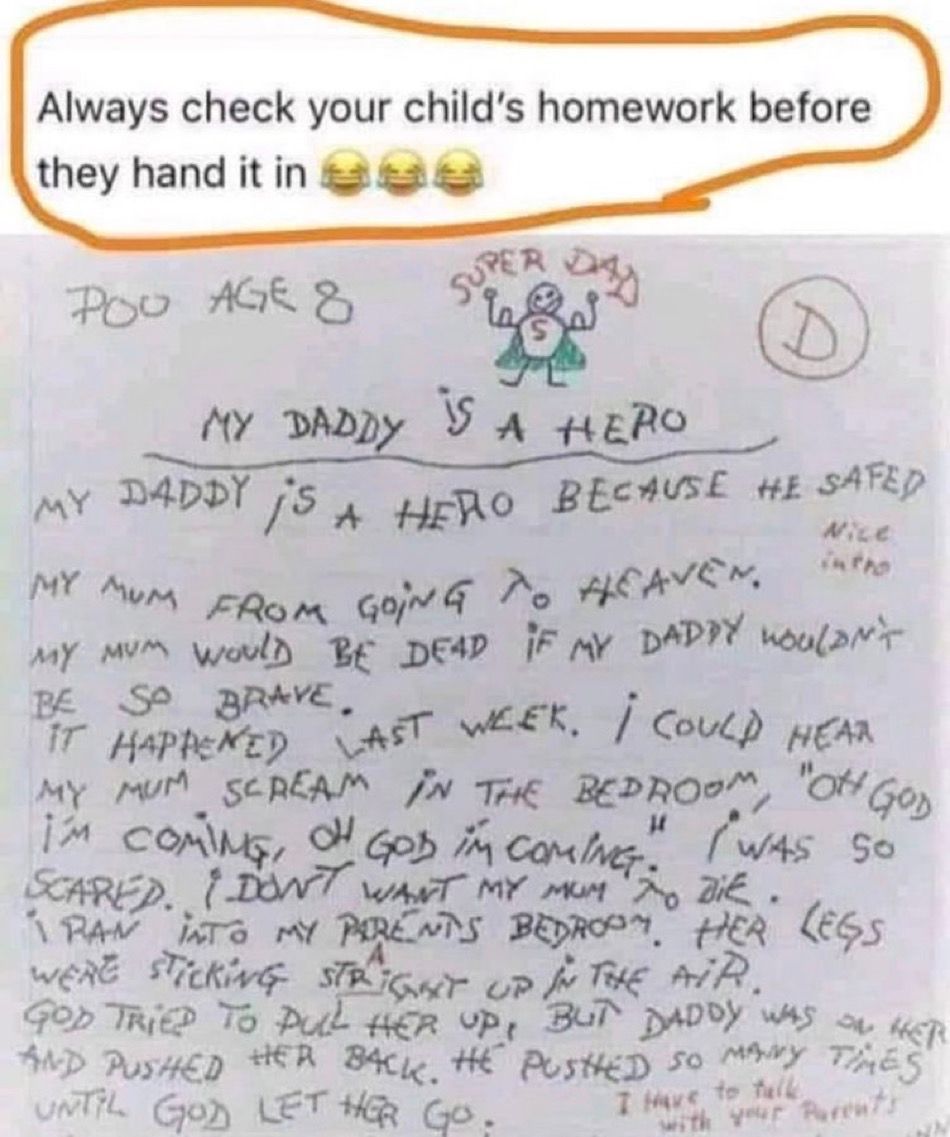 Always check your child's homework before
they hand it in 😂😂😂
POO AGE 8
SUPER DAD
S
D
MY DADDY iS A HERO
MY DADDY iS A HERO BECAUSE HE SAFED
Nice
intro
MY MUM FROM GOiNG TO HEAVEN.
MY MUM WOULD BE DEAD iF MY DADDY WOULDN'T
BE SO BRAVE.
iT HAPPENED LAST WEEK. i COULD HEAR
MY MUM SCREAM iN THE BEDROOM, "OH GOD
i'M COMiNG, OH GOD iM COMiNG." i WAS SO
SCARED. i DON'T WANT MY MUM TO DiE.
i RAN iNTO MY PARENTS BEDROOM. HER LEGS
A
WERE STiCKiNG STRiGHT UP iN THE AiR.
GOD TRiED TO PULL HER UP, BUT DADDY WAS ON HER
AND PUSHED HER BACK. HE PUSHED SO MANY TiMES
UNTiL GOD LET HER GO.
I Have to talk
with your Parents